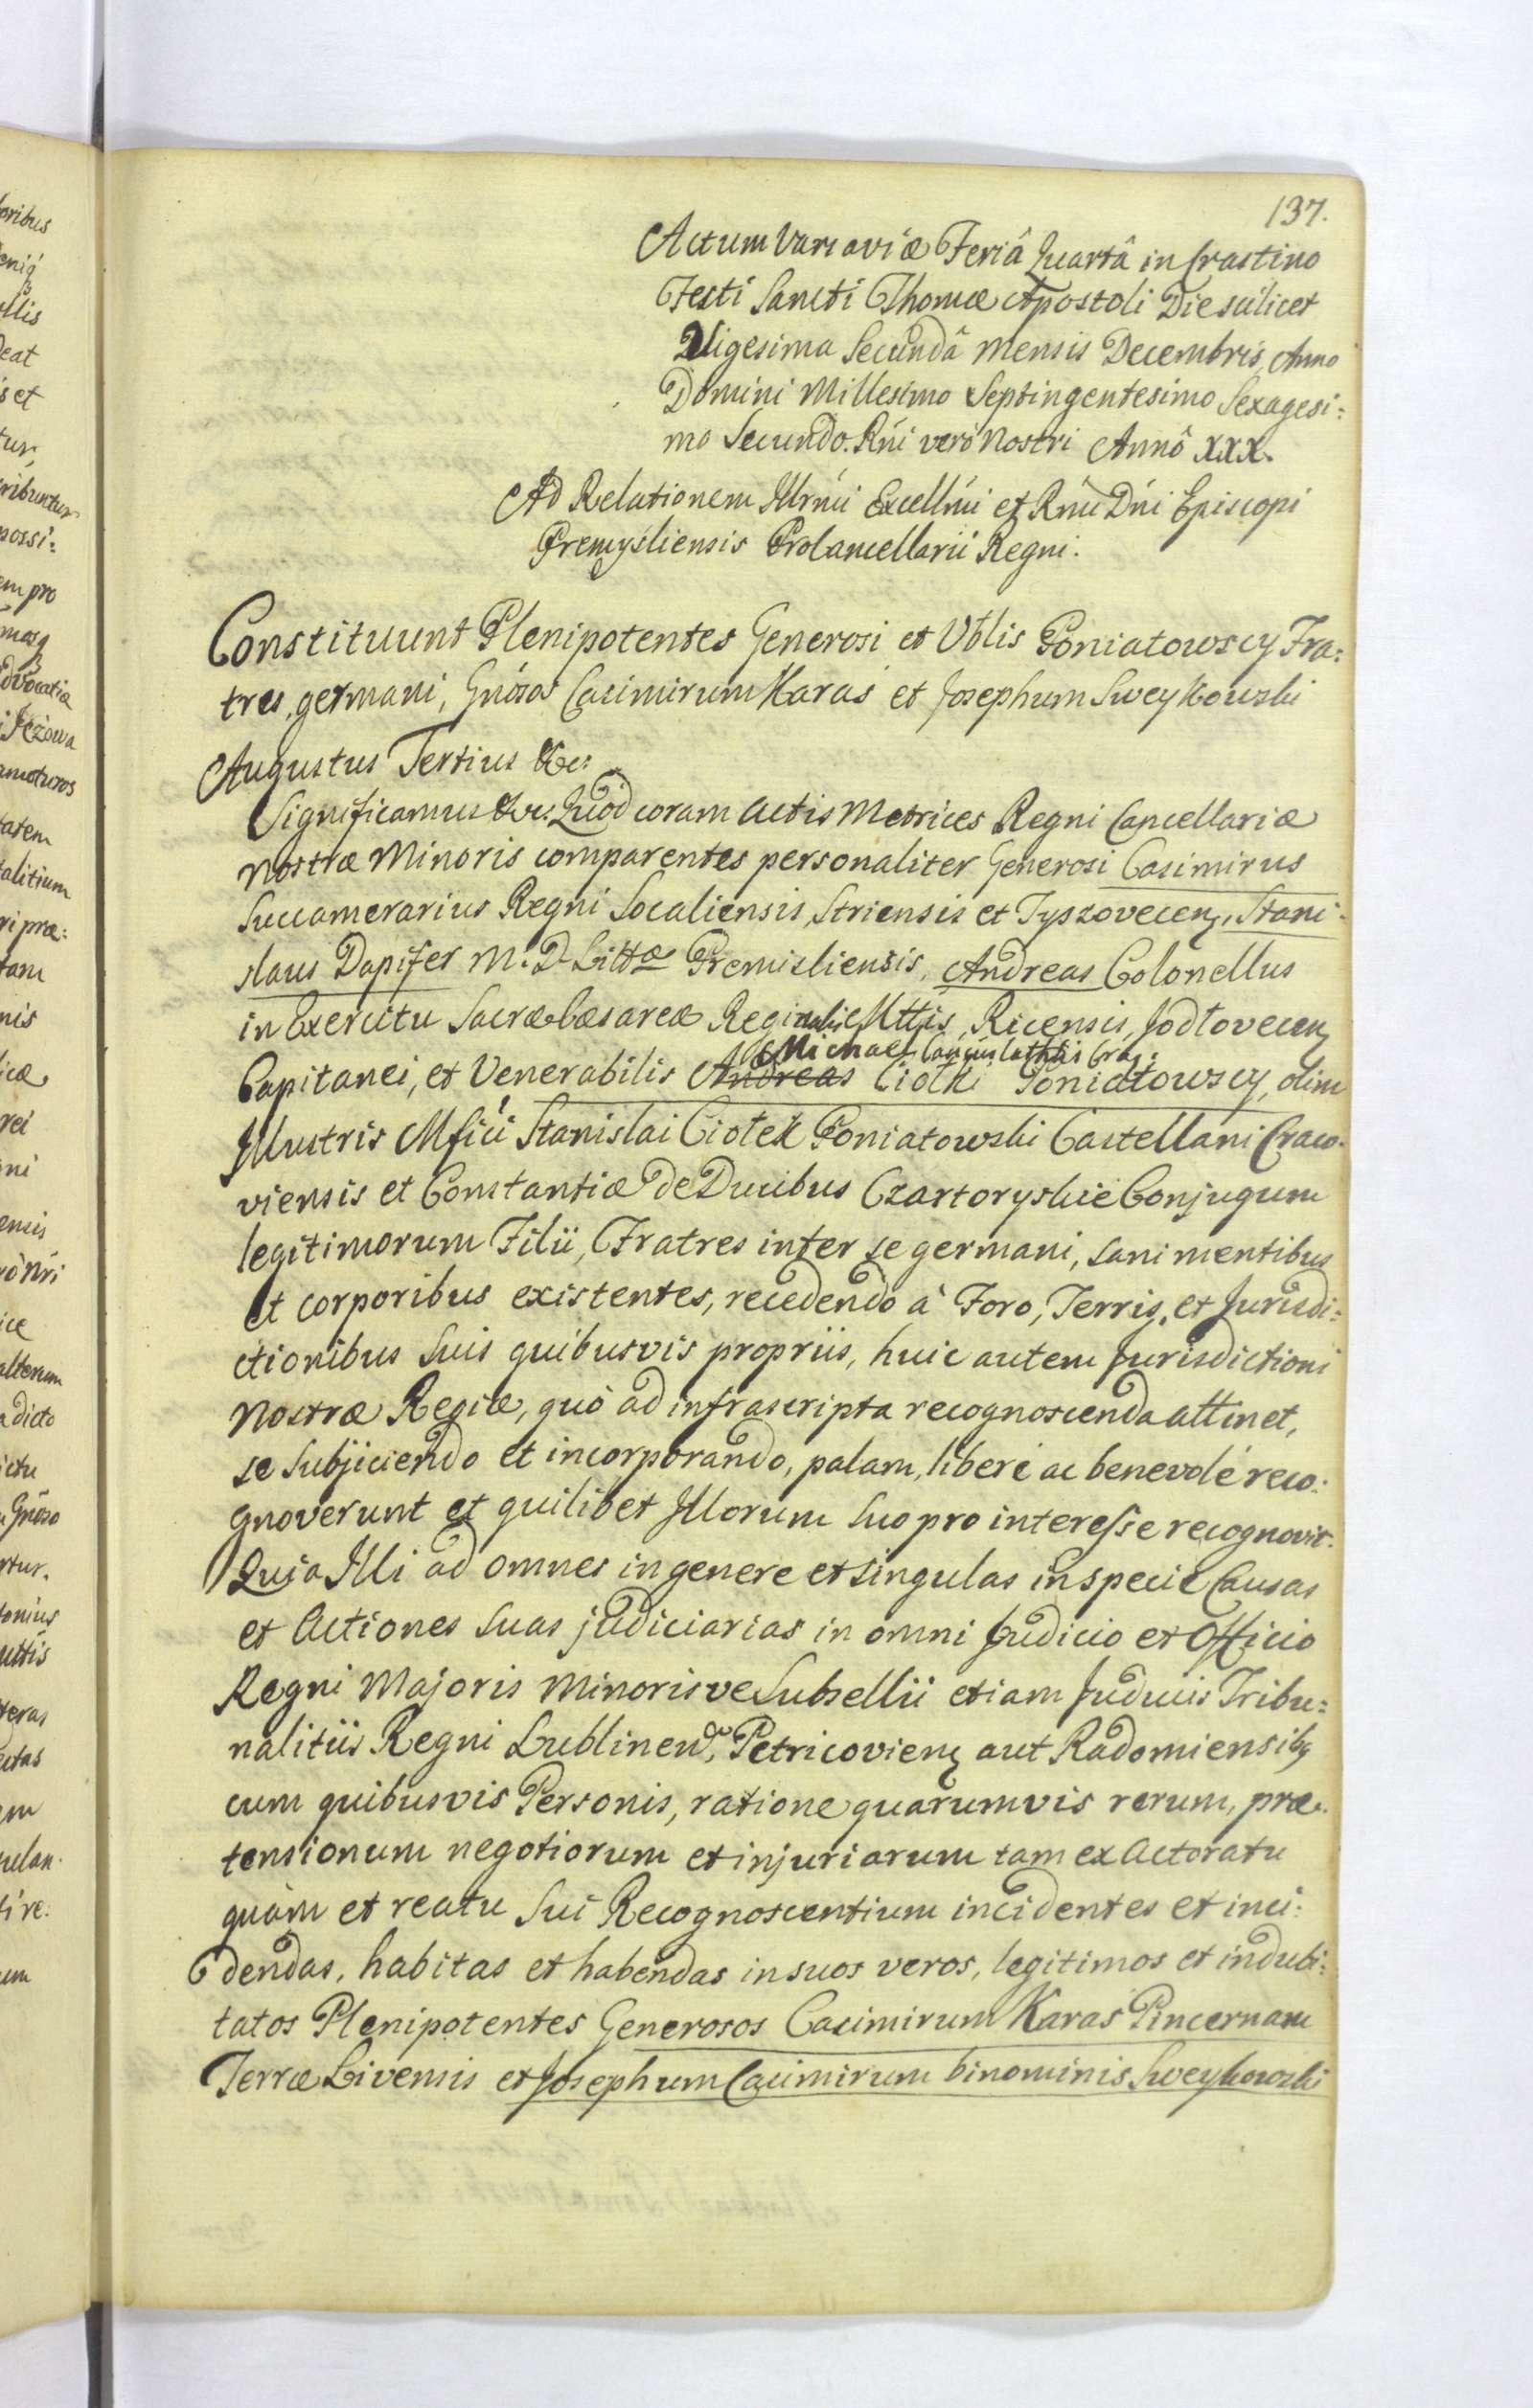 137.
Actum Varsaviæ Feriâ Quartâ in Crastino
Festi Sancti Thomæ Apostoli Die scilicet
Vigesima Secundâ mensis Decembris, Anno
Domini Millesimo Septingentesimo Sexagesi:
mo Secundo. Rńi verò Nostri Annô XXX.
Ad Relationem Illrńii Excellńii et Rńii Dńi Episcopi
Premysliensis Procancellarii Regni.
Constituunt Plenipotentes Generosi et Vblis Poniatowscy Fra:
tres germani, Gńosos Casimirum Karas et Josephum Sweykowski
Augustus Tertius &c:
Significamus &c: Quòd coram Actis Metrices Regni Cancellariæ
Nostræ Minoris comparentes personaliter Generosi Casimirus
Succamerarius Regni Socaliensis, Striensis et Tyszovecen, Stani-
slaus Dapifer M. D. Littæ Premisliensis, Andreas Colonellus
in Exercitu Sacræ Cæsareæ Reginalis Mttis, Ricensis, Jodłovecen
Michael Crac:
Capitanei, et Venerabilis Andreas Ciołki Poniatowscy, olim
Illustris Mfici Stanislai Ciołek Poniatowski Castellani Craco-
viensis et Constantiæ de Ducibus Czartoryskie Conjugum
legitimorum Filii, Fratres inter se germani, sani mentibus
et corporibus existentes, recedendo à Foro, Terris, et Jurisdi:
ctionibus suis quibusvis propriis, huic autem Jurisdictioni
Nostræ Regiæ, quò ad infrascripta recognoscenda attinet,
se subjiciendo et incorporando, palam, liberè ac benevolè reco:
gnoverunt et quilibet Illorum suo pro interesse recognovit.
Quia Illi ad omnes in genere et singulas in specie Causas
et Actiones suas judiciarias in omni Judicio et Officio
Regni Majoris Minorisve Subsellii etiam Judiciis Tribu:
nalitiis Regni Lublinen, Petricovien aut Radomiensibq
cum quibusvis Personis, ratione quarumvis rerum, præ-
tensionum negotiorum et injuriarum tam ex Actoratu
quàm et reatu sui Recognoscentium incidentes et inci:
dendas, habitas et habendas in suos veros, legitimos et indubi:
tatos Plenipotentes Generosos Casimirum Karas Pincernam
Terræ Livensis et Josephum Casimirum binominis Sweykowski